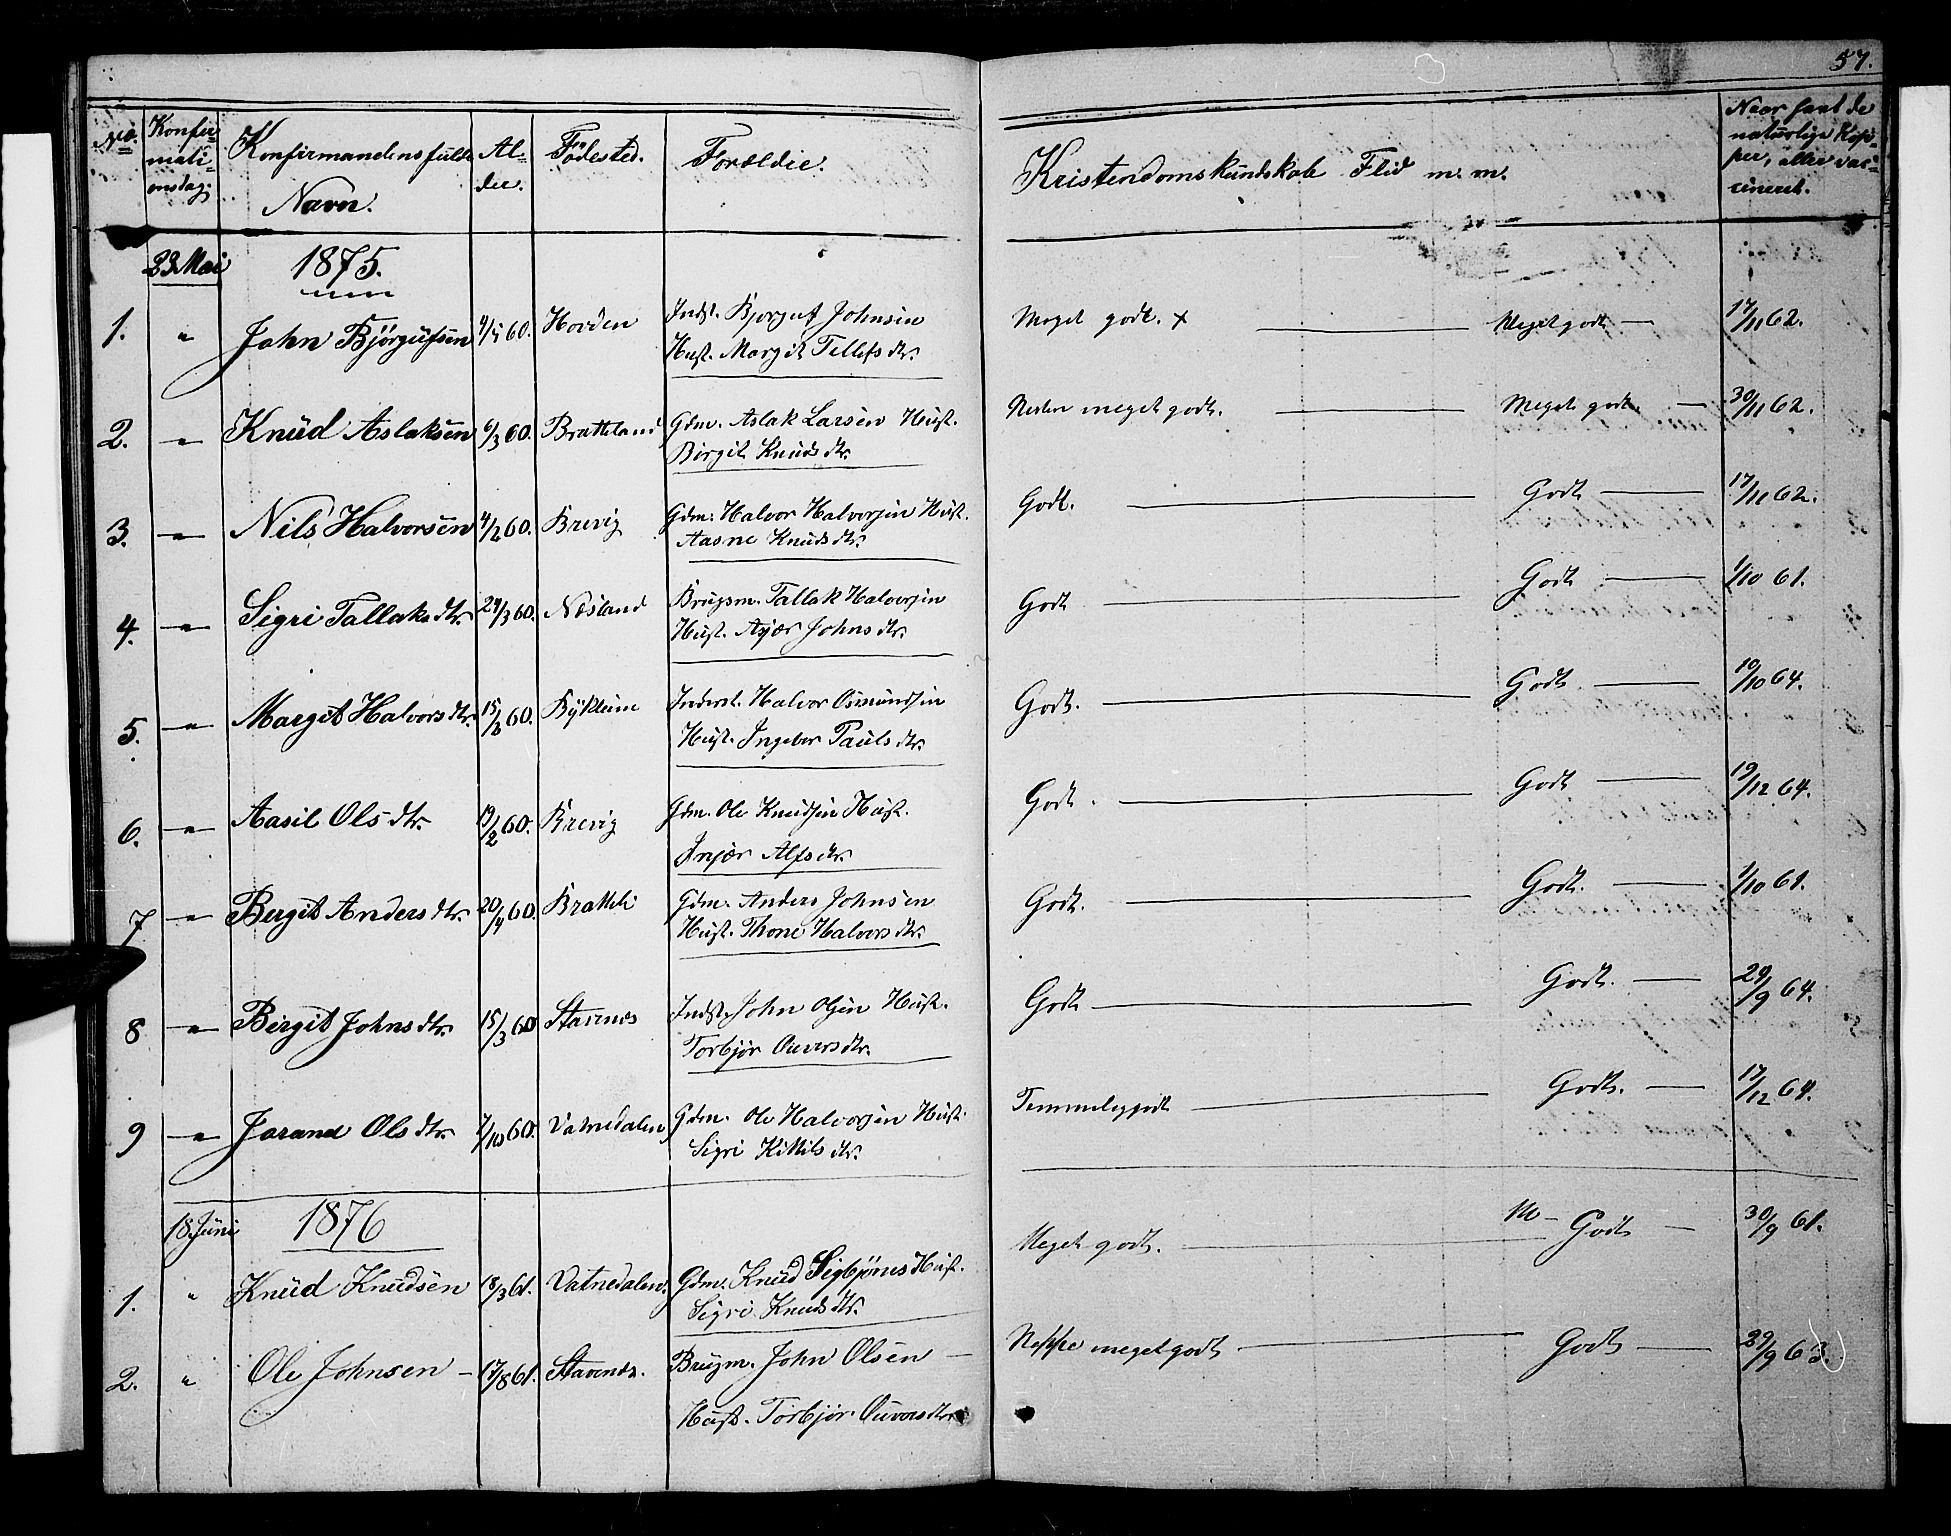 57.
No. Konfirmationsdag. Konfirmandens fulde Navn. Alder. Födested. Forældre. Kristendomskundskab Flid m. m. Naar havt de naturlige Kopper, eller vaccineret.
23 Mai 1875.
1. " John Björgufsen 4/5 60. Hovden Indst. Bjorguf Johnsen Meget godt. x — Meget godt — 17/11 62.
Hust. Margit Tellefs dtr.
2. " Knud Aslaksen 6/3 60. Brattland Gdm. Aslak Larsen Hust. Nesten meget godt. — Meget godt. — 30/11 62.
Birgit Knuds dtr.
3. " Nils Halvorsen 4/2 60. Brevig Gdm. Halvor Halvorsen Hust. Godt. — Godt — 17/11 62.
Aasne Knuds dtr.
4. " Sigri Tallaks dtr. 24/3 60. Næsland Brugsm. Tallak Halvorsen Godt — Godt — 1/10 61.
Hust. Asjær Johns dtr.
5. " Margit Halvors dtr. 15/3 60. Bykleim Inderst. Halvor Osmundsen Godt. — Godt. — 10/10 64.
Hust. Ingebor Pauls dtr.
6. " Aasil Ols dtr. 19/2 60. Brevig Gdm. Ole Knudsen Hust. Godt. — Godt — 19/12 64.
Injær Alfs dtr.
7 " Bergit Anders dtr. 20/4 60. Bratteli Gdm. Anders Johnsen Godt. — Godt. — 1/10 61.
Hust. Thone Halvors dtr.
8 " Birgit Johns dtr. 15/3 60 Stavenes Indst. John Olsen Hust. Godt — Godt. — 29/9 64.
Torbjør Ouvers dtr.
9 " Jorand Ols dtr. 7/10 60. Vatnedalen Gdm. Ole Halvorsen Hust. Temmeligodt — Godt. — 17/12 64.
Sigri Kittils dtr.
18 Juni 1876
1. " Knud Knudsen 18/3 61. Vatnedalen. Gdm. Knud Sigbjørns Hust. Meget godt. — M– Godt — 30/9 61.
Sigri Knuds dtr.
2. " Ole Johnsen – 17/8 61. Stavenes. Brugm. John Olsen — Neppe meget godt — Godt — 29/9 63.
Hust. Torbjør Ouvors dtr.